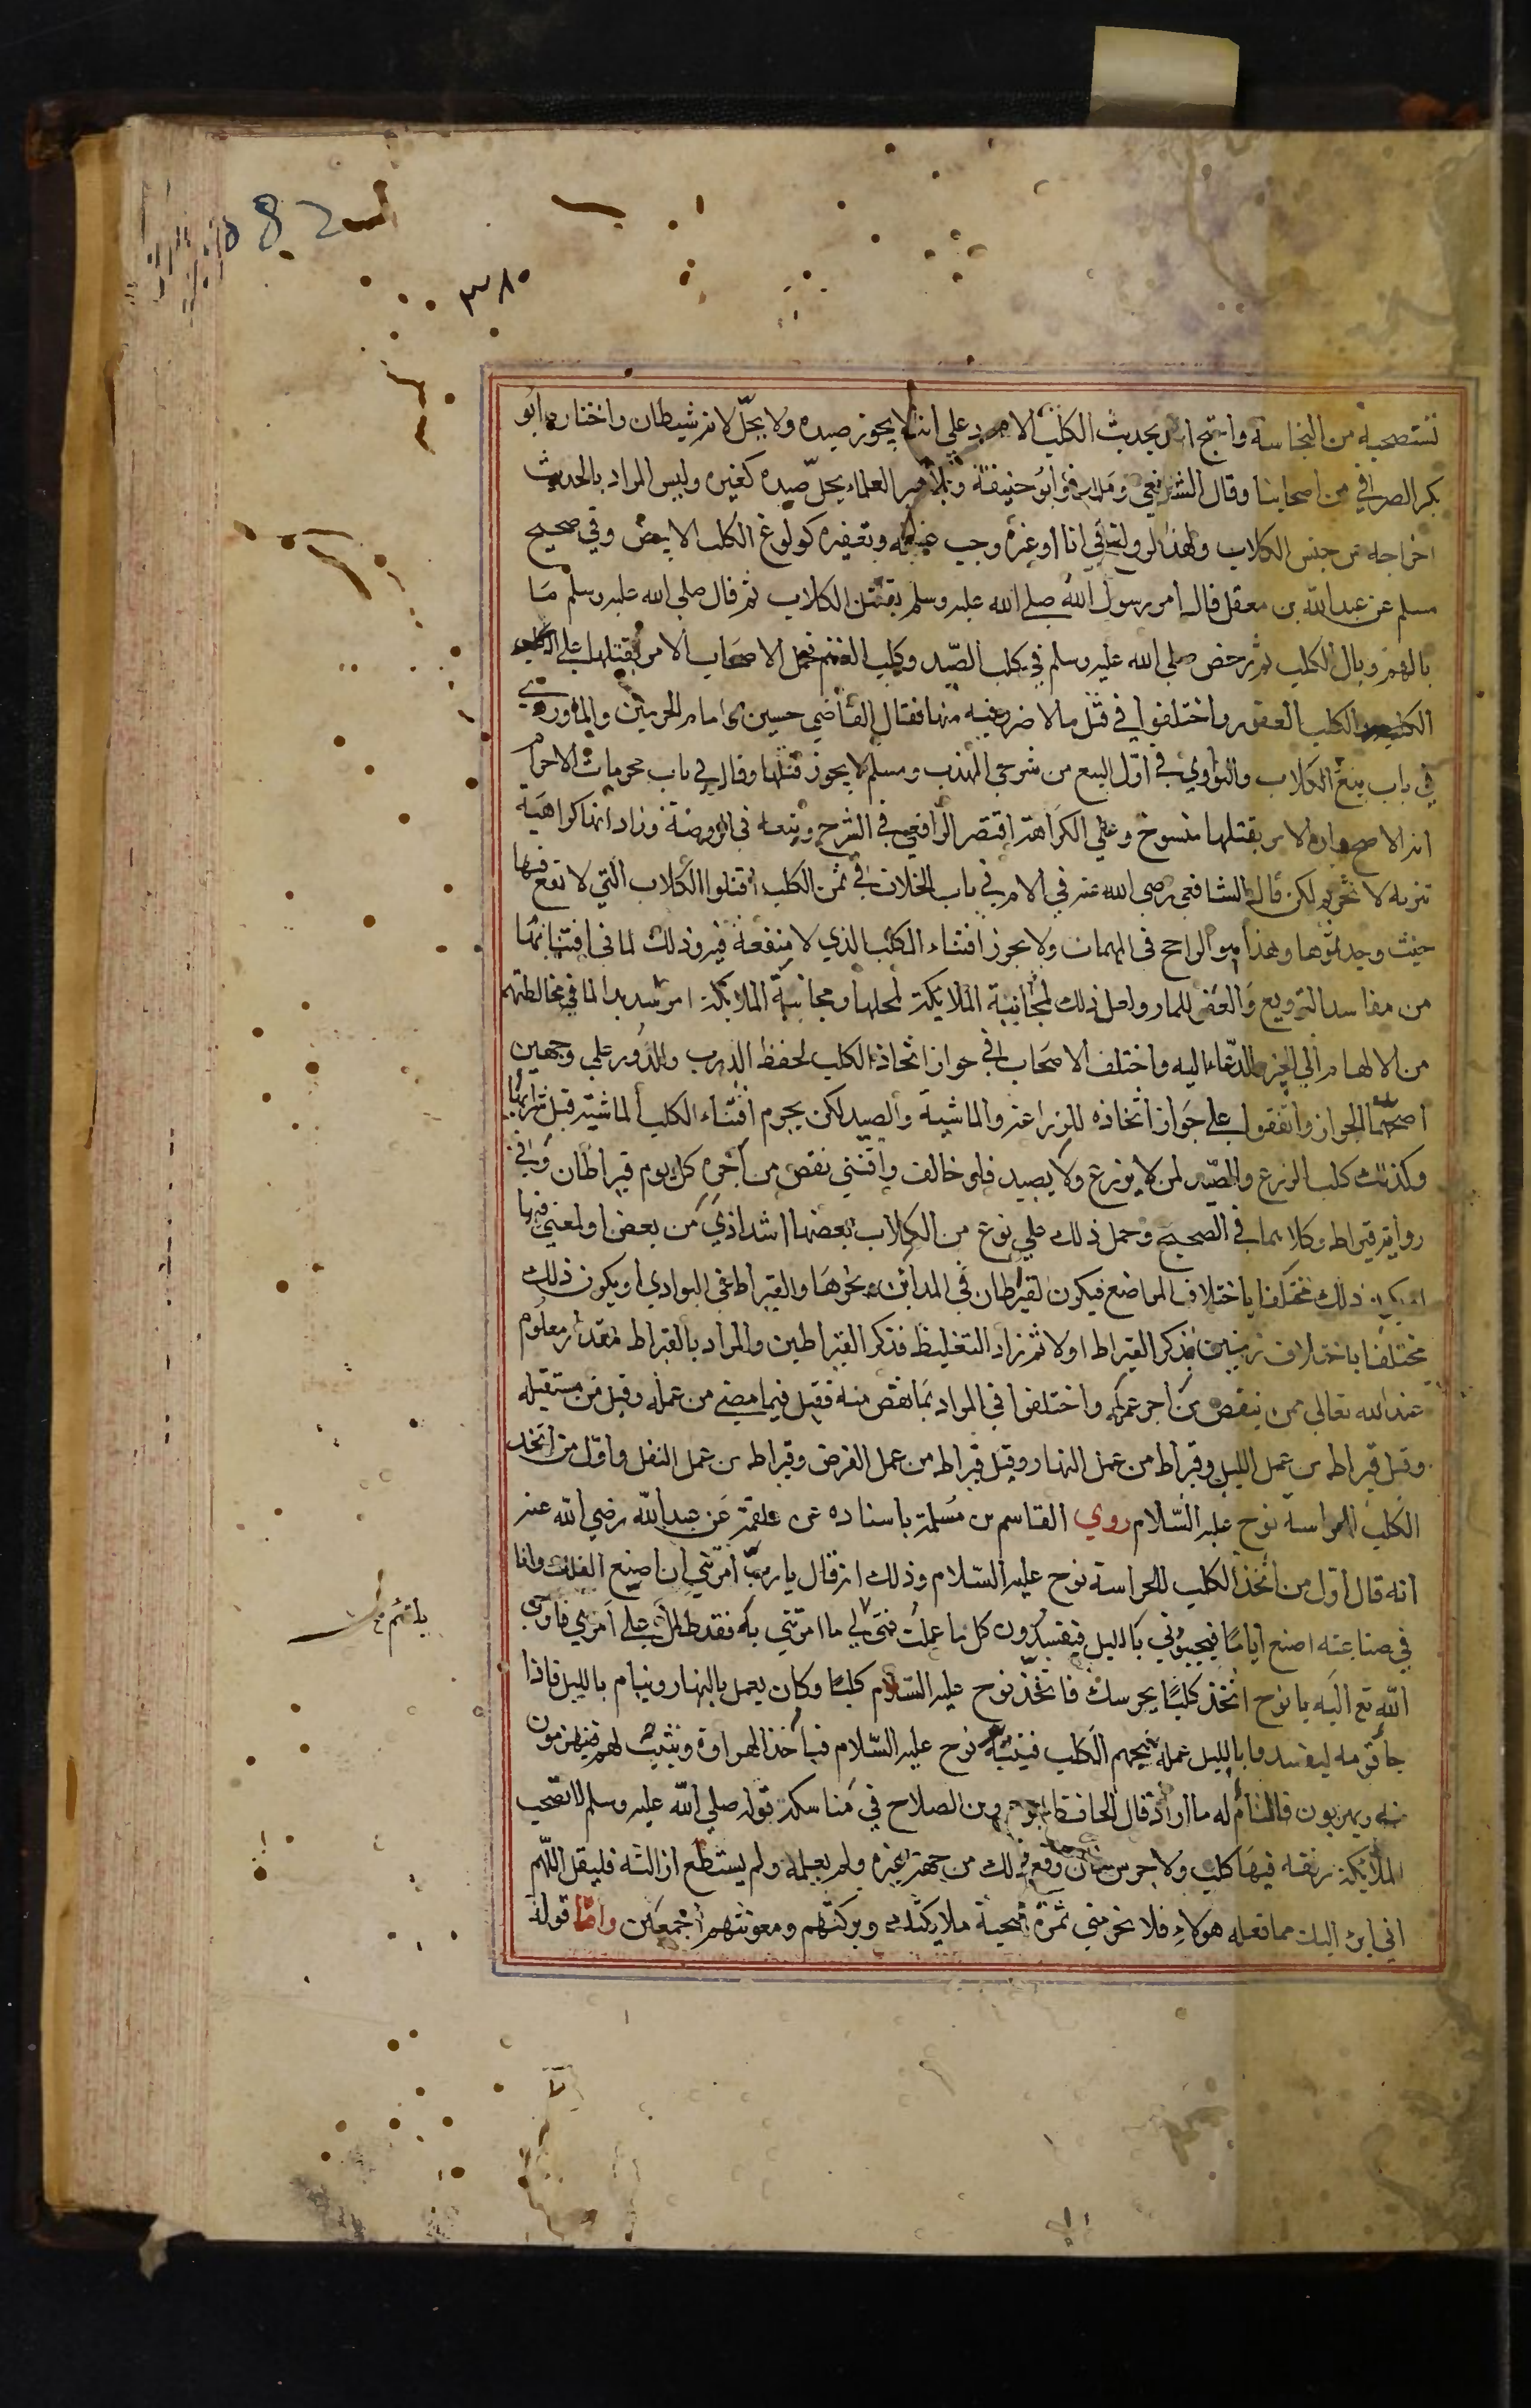 ٣٨٠
تستصحبه من النجاسة واحتج احمد بحديث الكلب الاسود علي انه لا يجوز صيده ولا يحلّ لانه شيطان واختاره ابو
بكر الصيرافي من اصحابنا وقال الشافعي ومالك وابو حنيفة وجماهير العلماء يحلّ صيده كغيره وليس المراد بالحديث
اخراجه عن جنس الكلاب ولهذا لو ولغ في اناء او غيره وجب غسله وتعفيره كولوغ الكلب الابيض وفي صحيح
مسلم عن عبد الله بن مغفل قال امر رسول الله صلي الله عليه وسلم بقتل الكلاب ثم قال صلي الله عليه وسلم ما
بالهم وبال الكلاب ثم رخص صلي الله عليه وسلم في كلب الصّيد وكلب الغنم فحمل الاصحاب الامر بقتلها علي الكلب
الكلب والكلب العقور واختلفوا في قتل ما لا ضرر فيه منها فقال القاضي حسين وامام الحرمين والماوردي
في باب بيع الكلاب والنواوي في اوّل البيع من شرحي المهذب ومسلم لا يجوز قتلها وقال في باب محرمات الاحرام
انه الاصح وان الامر بقتلها منسوخ وعلي الكراهة اقتصر الرافعي في الشرح وتبعه في الروضة وزاد انها كراهية
تنزيه لا تحريم لكن قال الشافعي رضي الله عنه في الام في باب الخلاف في ثمن الكلب اقتلوا الكلاب التي لا نفع فيها
حيث وجدتموها وهذا هو الراجح في المهمات ولا يجوز اقتناء الكلب الذي لا منفعة فيه وذلك لما في اقتنائها
من مفاسد الترويع والعقر للمار ولعل ذلك لمجانبة الملايكة لمحلها ومجانبة الملايكة امر شديد لما في مخالطتهم
من الالهام الي الخير والدعاء اليه واختلف الاصحاب في جواز اتخاذ الكلب لحفظ الدرب والدور علي وجهين
اصحهما الجواز واتفقوا علي جواز اتخاذه للزراعة والماشية والصيد لكن يحرم اقتناء الكلب الماشية قبل شرايها
وكذلك كلب الزرع والصّيد لمن لا يزرع ولا يصيد فلو خالف واقتني نقص من اجره كل يوم قيراطان وفي
رواية قيراط وكلاهما في الصحيح وحمل ذلك علي نوع من الكلاب بعضها اشد اذي من بعض او لمعني فيها
او يكون ذلك مختلفا باختلاف المواضع فيكون القيراطان في المداين ونحوها والقيراط في البوادي او يكون ذلك
مختلفا باختلاف زمنين فذكر القيراط اولا ثم زاد التغليظ فذكر القيراطين والمراد بالقيراط مقدار معلوم
عند الله تعالي ممن ينقص من اجر عمله واختلفوا في المراد بما نقص منه فقيل فيما مضي من عمله وقيل من مستقبله
وقيل قيراط من عمل الليل وقيراط من عمل النهار وقيل قيراط من عمل الفرض وقيراط من عمل النفل واوّل من اتخذ
الكلب للحراسة نوح عليه السّلام روي القاسم بن مسلمة باسناده عن علقمة عن عبد الله رضي الله عنه
انه قال اول من اتخذ الكلب للحراسة نوح عليه السّلام وذلك انه قال يا ربّ امرتني ان اصنع الفلك وانا
في صناعته اصنع اياما فيجيوني بالليل فيفسدون كل ما عملت فمتي يلتئم لي ما امرتني به فقد طال علي امري فاوحي
الله تع اليه يا نوح اتخذ كلبًا يحرسك فاتخذ نوح عليه السّلام كلبًا وكان يعمل بالنهار وينام بالليل فاذا
جا قومه ليفسدوا بالليل عمله نبحهم الكلب فينتبه نوح عليه السّلام فيأخذ الهراوة ويثب لهم فينهزمون
منه ويهربون فالتأم له ما اراد قال الحافظ ابو عمرو بن الصلاح في مناسكه قوله صلي الله عليه وسلم لا تصحب
الملايكة رفقة فيها كلب ولا جرس فان وقع ذلك من جهة غيره ولم يستطع ازالته فليقل اللّهم
اني ابرء اليك مما فعله هولاء فلا تحرمني ثمرة صحبة ملايكتك وبركتهم ومعونتهم اجمعين واما قوله
يلتئم